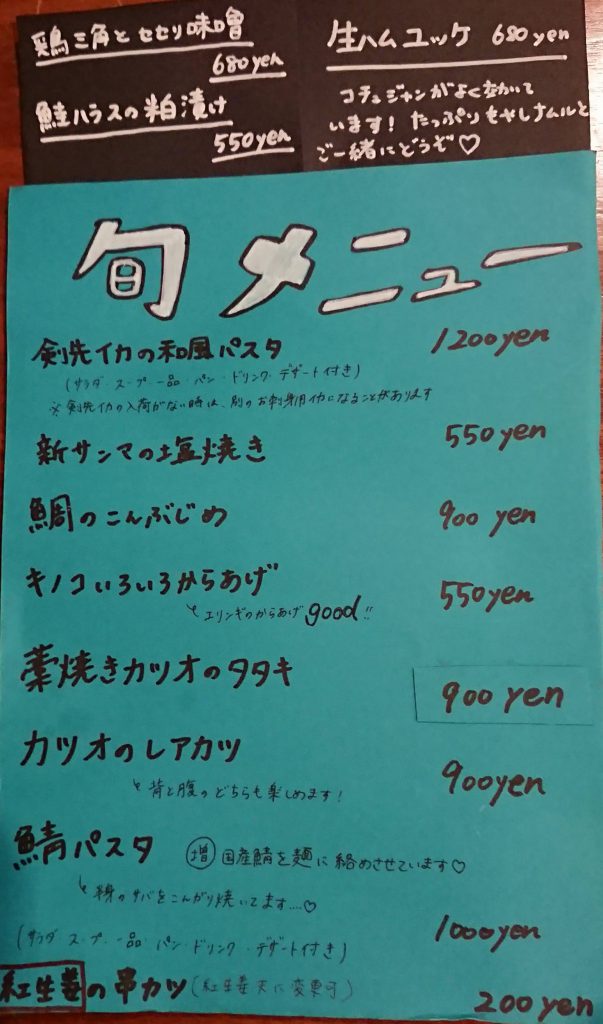 鶏三角とセセリ味噌
680yen
鮭ハラスの粕漬け
550yen
生ハムユッケ 680yen
コチュジャンがよくきいて
います！たっぷりもやしナムルと
ご一緒にどうぞ♡
旬メニュー
剣先イカの和風パスタ 1200yen
(サラダ・スープ・一品・パン・ドリンク・デザート付き)
※剣先イカの入荷がない時は、別のお刺身用イカになることがあります
新サンマの塩焼き 550yen
鯛のこんぶじめ 900yen
キノコいろいろからあげ 550yen
エリンギのからあげ good!!
藁焼きカツオのタタキ 900yen
カツオのレアカツ 900yen
背と腹のどちらも楽しめます！
鯖パスタ 増 国産鯖を麺に絡めさせています♡
半身のサバをこんがり焼いてます....♡
(サラダ・スープ・一品・パン・ドリンク・デザート付き) 1000yen
紅生姜の串カツ(紅生姜天に変更可) 200yen